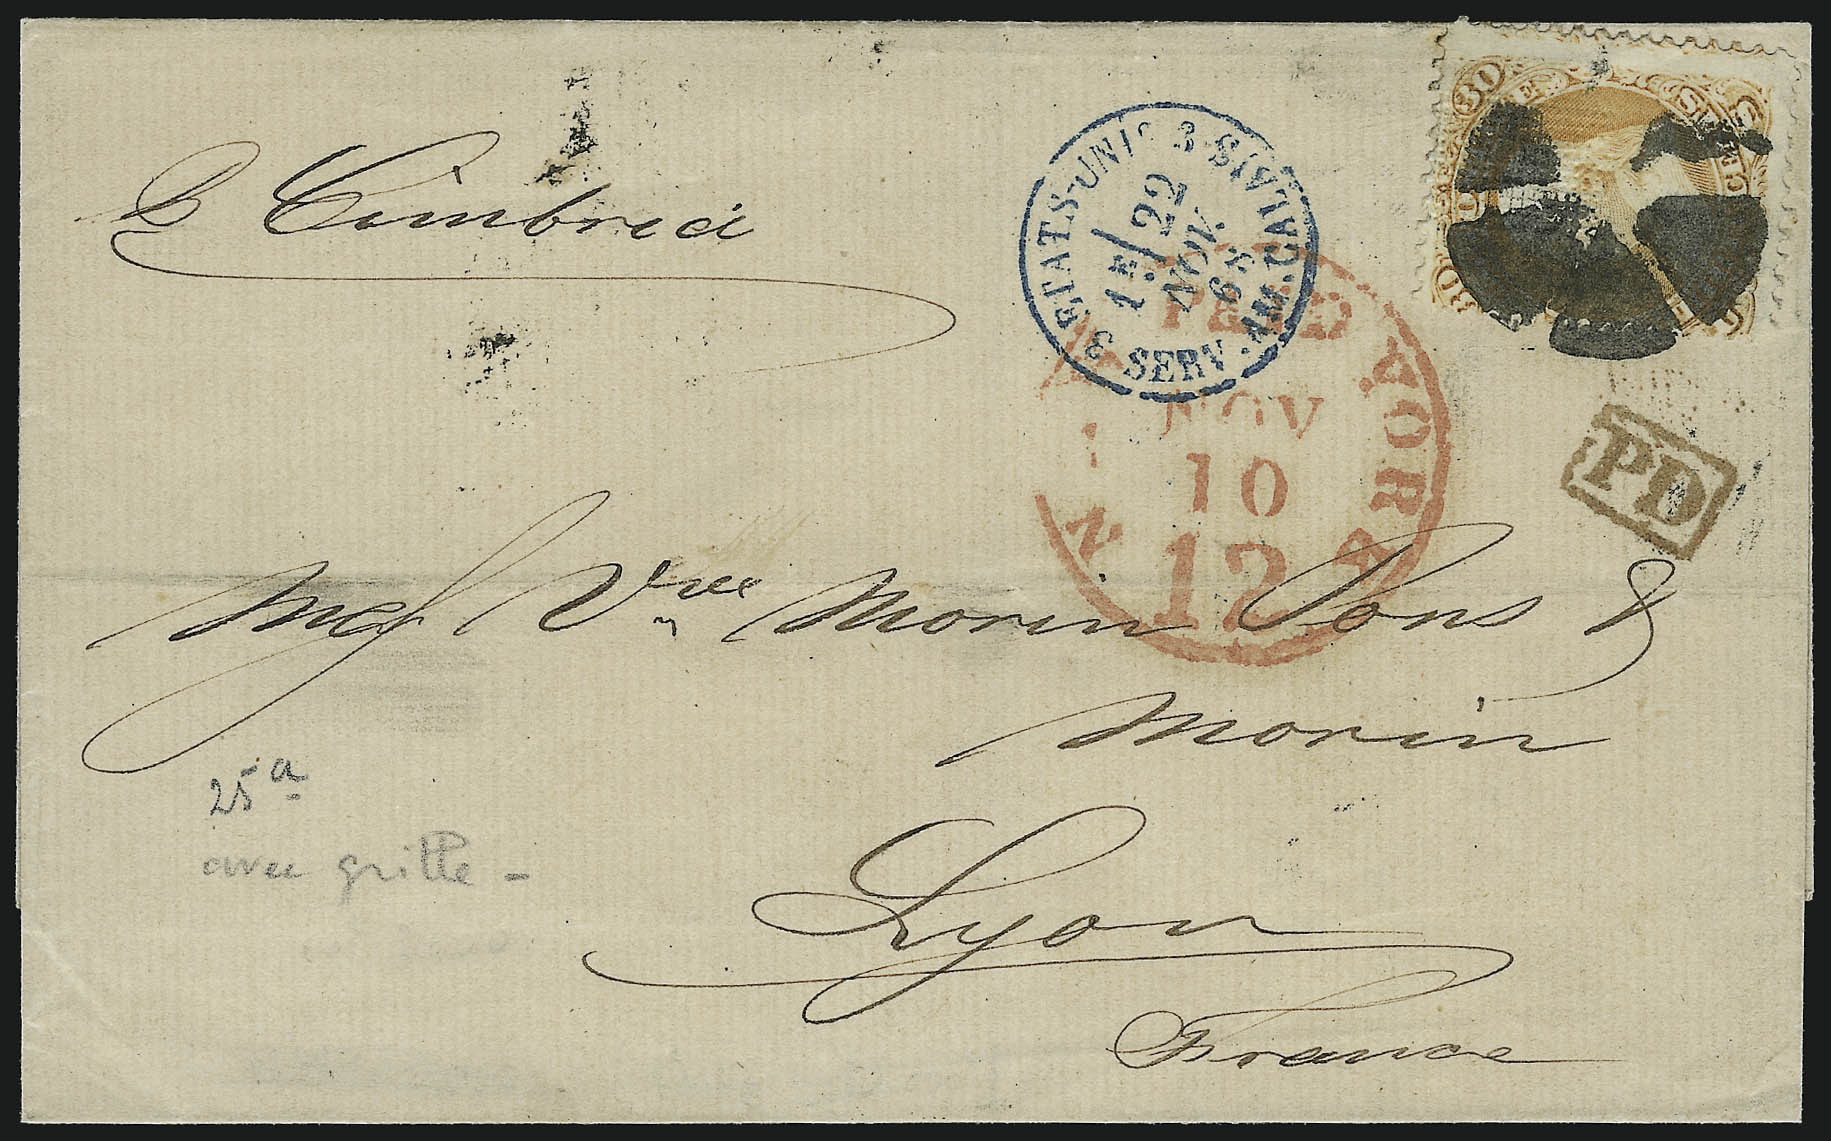 p Cimbria
ETATS-UNIS 3 SERV. AM. CALAIS 3
1E/
22
NOV.
68
PAID
NEW YORK
NOV
10
12
30
30
PD
Mess Vve Morin Pons &
Morin
Lyon
France
25a
avec grille -